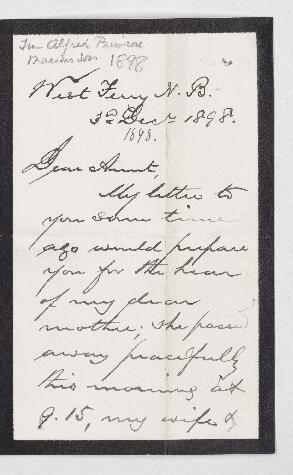 From Alfred Primrose
Marion's son 1898
West Ferry N. B.
3d Decr 1898.
1898.
Dear Aunt,
My letter to
you some time
ago would prepare
you for the
of my dear
mother; she passed
away peacefully
this morning at
9.15, my wife &